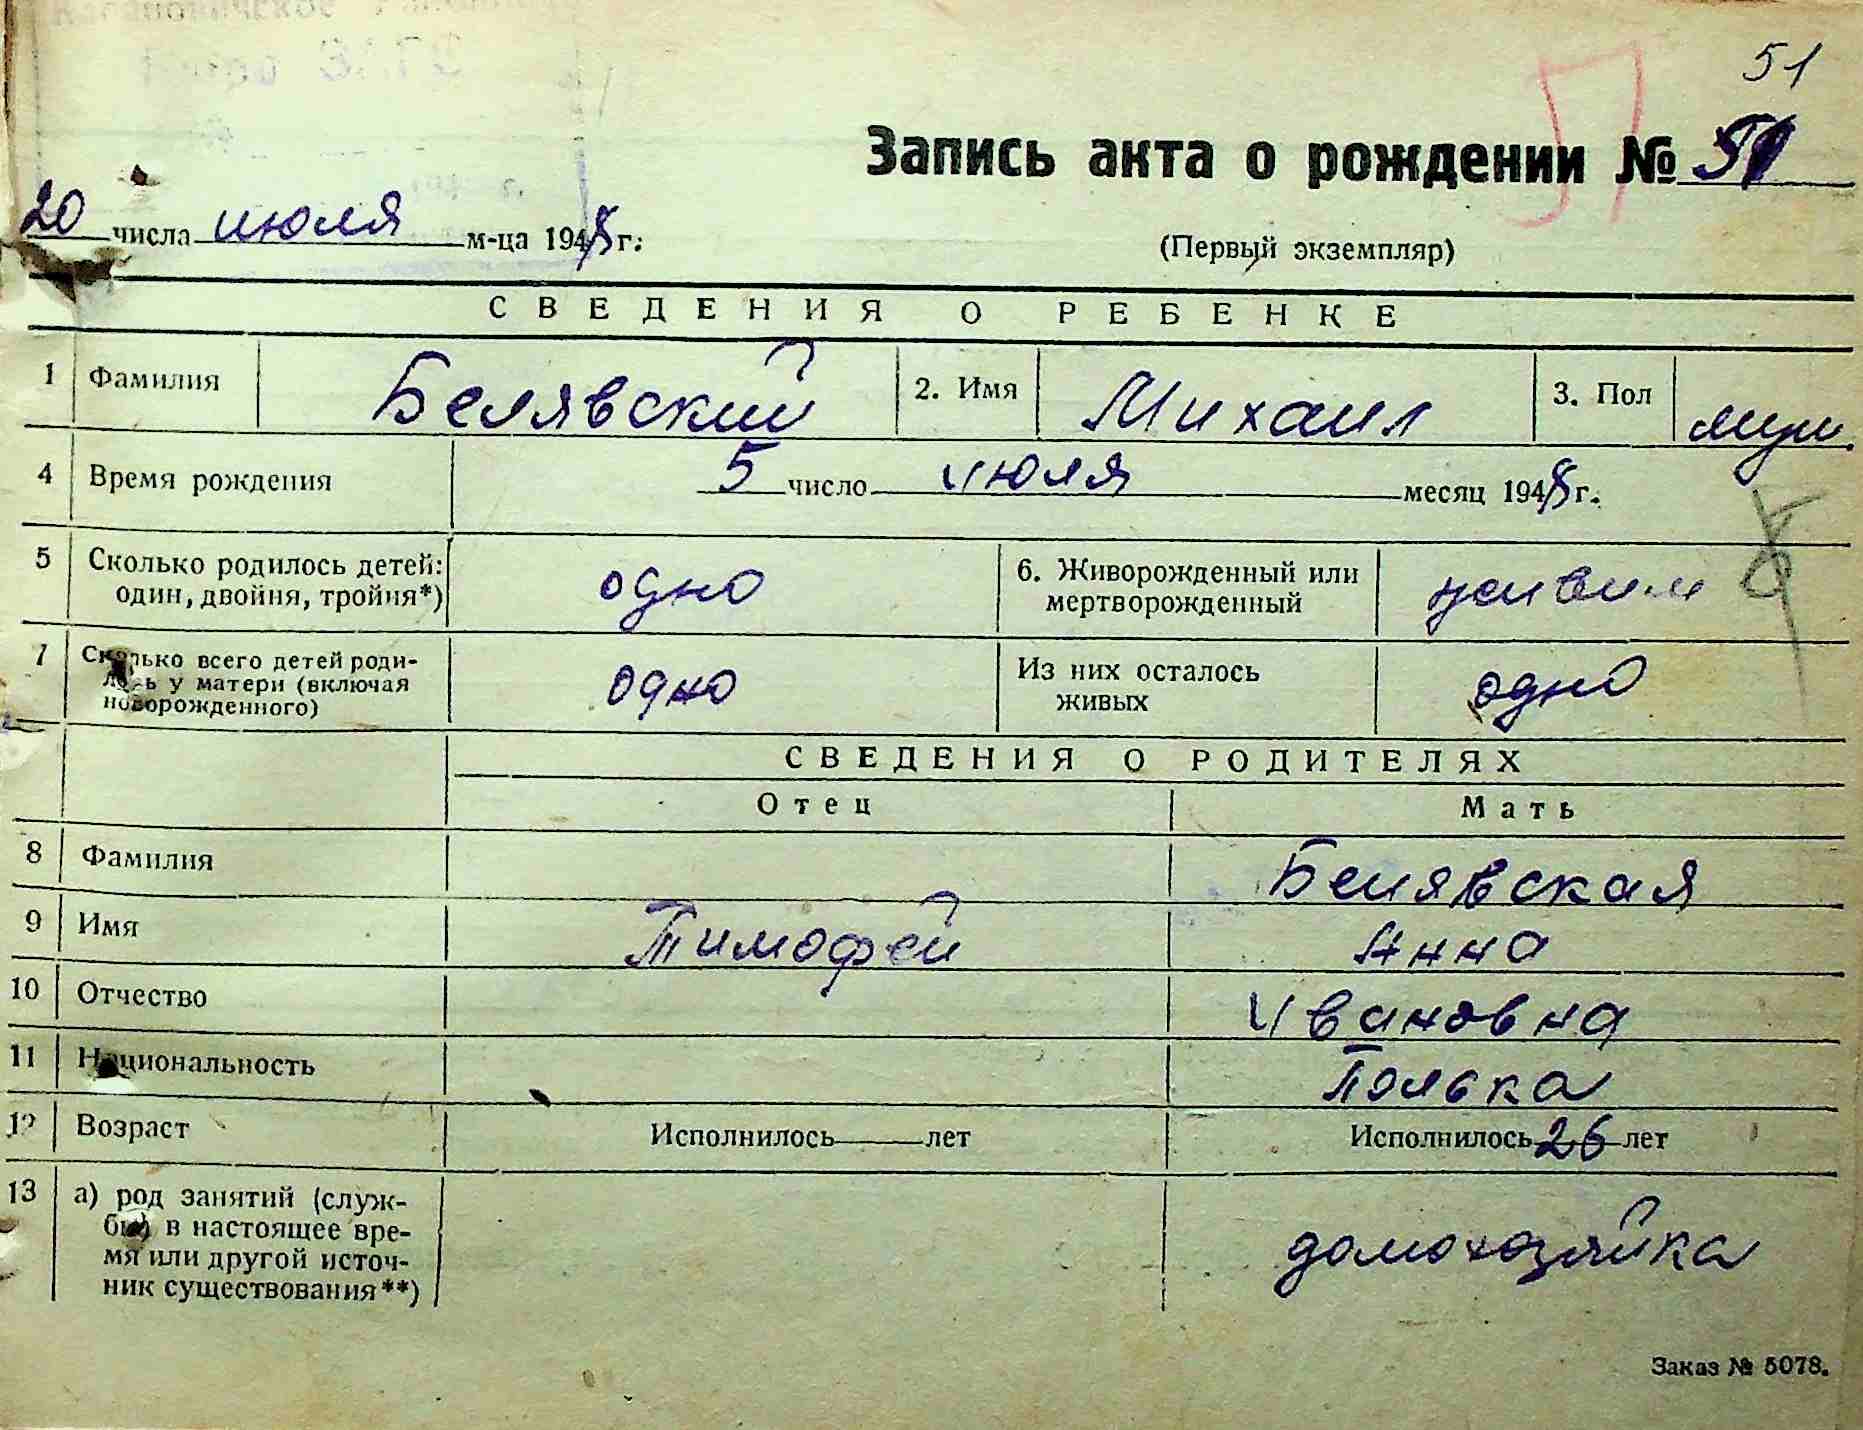 51
Запись акта о рождении № 51
20 числа июля м-ца 1948 г.
(Первый экземпляр)
СВЕДЕНИЯ О РЕБЕНКЕ
1 Фамилия Белявский 2. Имя Михаил 3. Пол муж.
4 Время рождения 5 число июля месяц 1948 г.
5 Сколько родилось детей: одно 6. Живорожденный или живым
один, двойня, тройня*) мертворожденный
7 Сколько всего детей роди- одно Из них осталось одно
лось у матери (включая живых
новорожденного)
СВЕДЕНИЯ О РОДИТЕЛЯХ
Отец Мать
8 Фамилия Белявская
9 Имя Тимофей Анна
10 Отчество Ивановна
11 Национальность Полька
12 Возраст Исполнилось лет Исполнилось 26 лет
13 а) род занятий (служ-
бы) в настоящее вре- домохозяйка
мя или другой источ-
ник существования**)
Заказ № 5078.